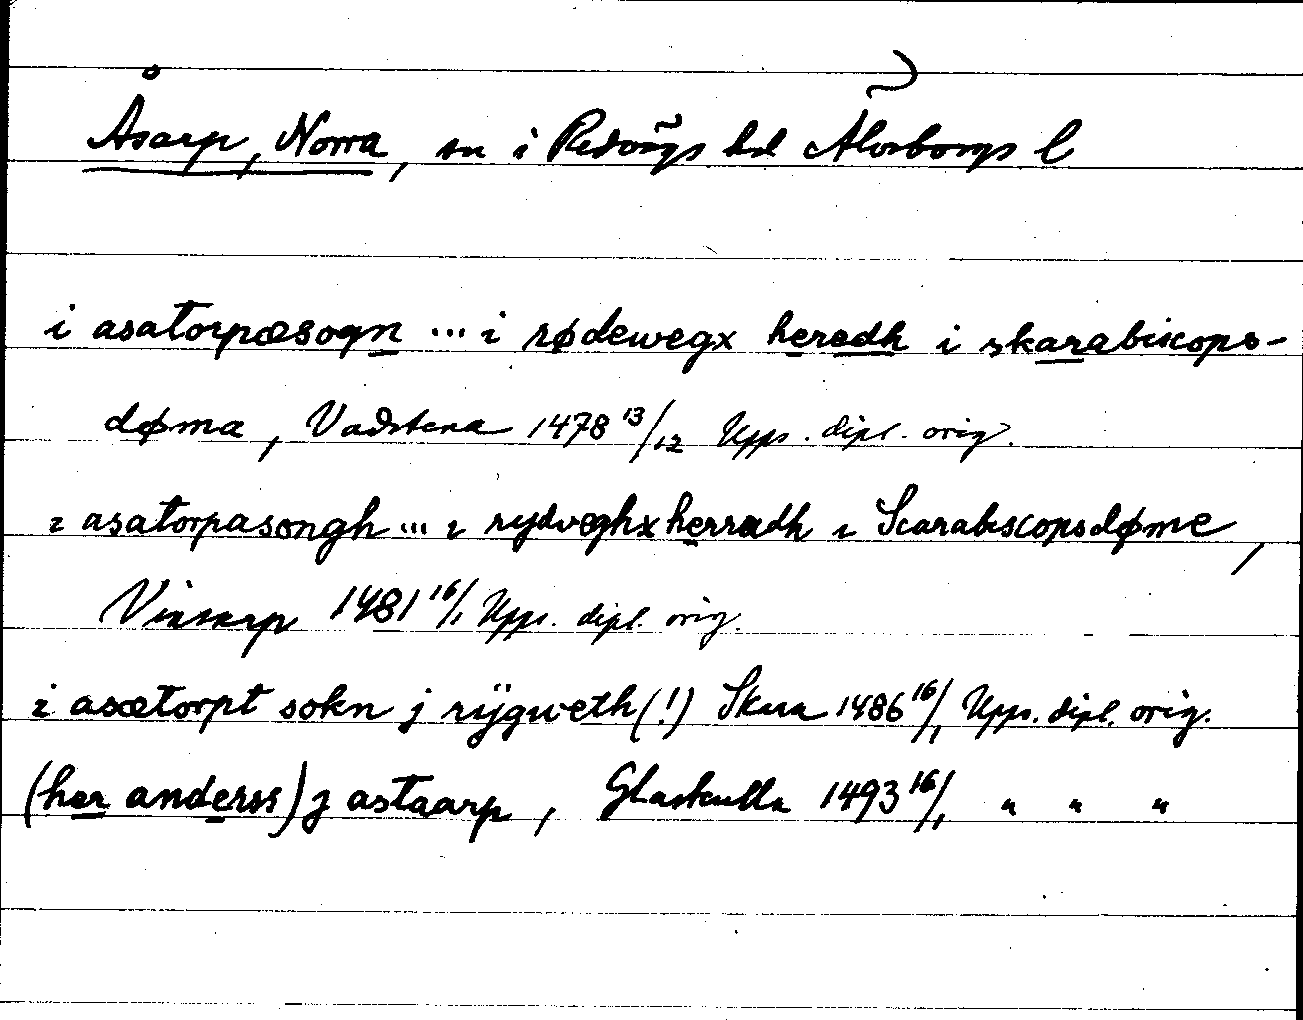 Åsarp, Norra, sn i Redvägs hd Älvsborgs l
i asatorpæsogn ... i rødewegx heradh i skarabiscops-
døma, Vadstena 1478 13/12 Upps. dipl. orig.
i asatorpasongh ... i rydveghx herradh i Scarabiscopsdøme,
1481 16/1 Upps. dipl. orig.
i asætorpt sokn j rÿgweth (!) Skara 1486 16/1 Upps. dipl. orig.
(her anderss) j astaarp, Glaskulla 1493 16/1 " " "